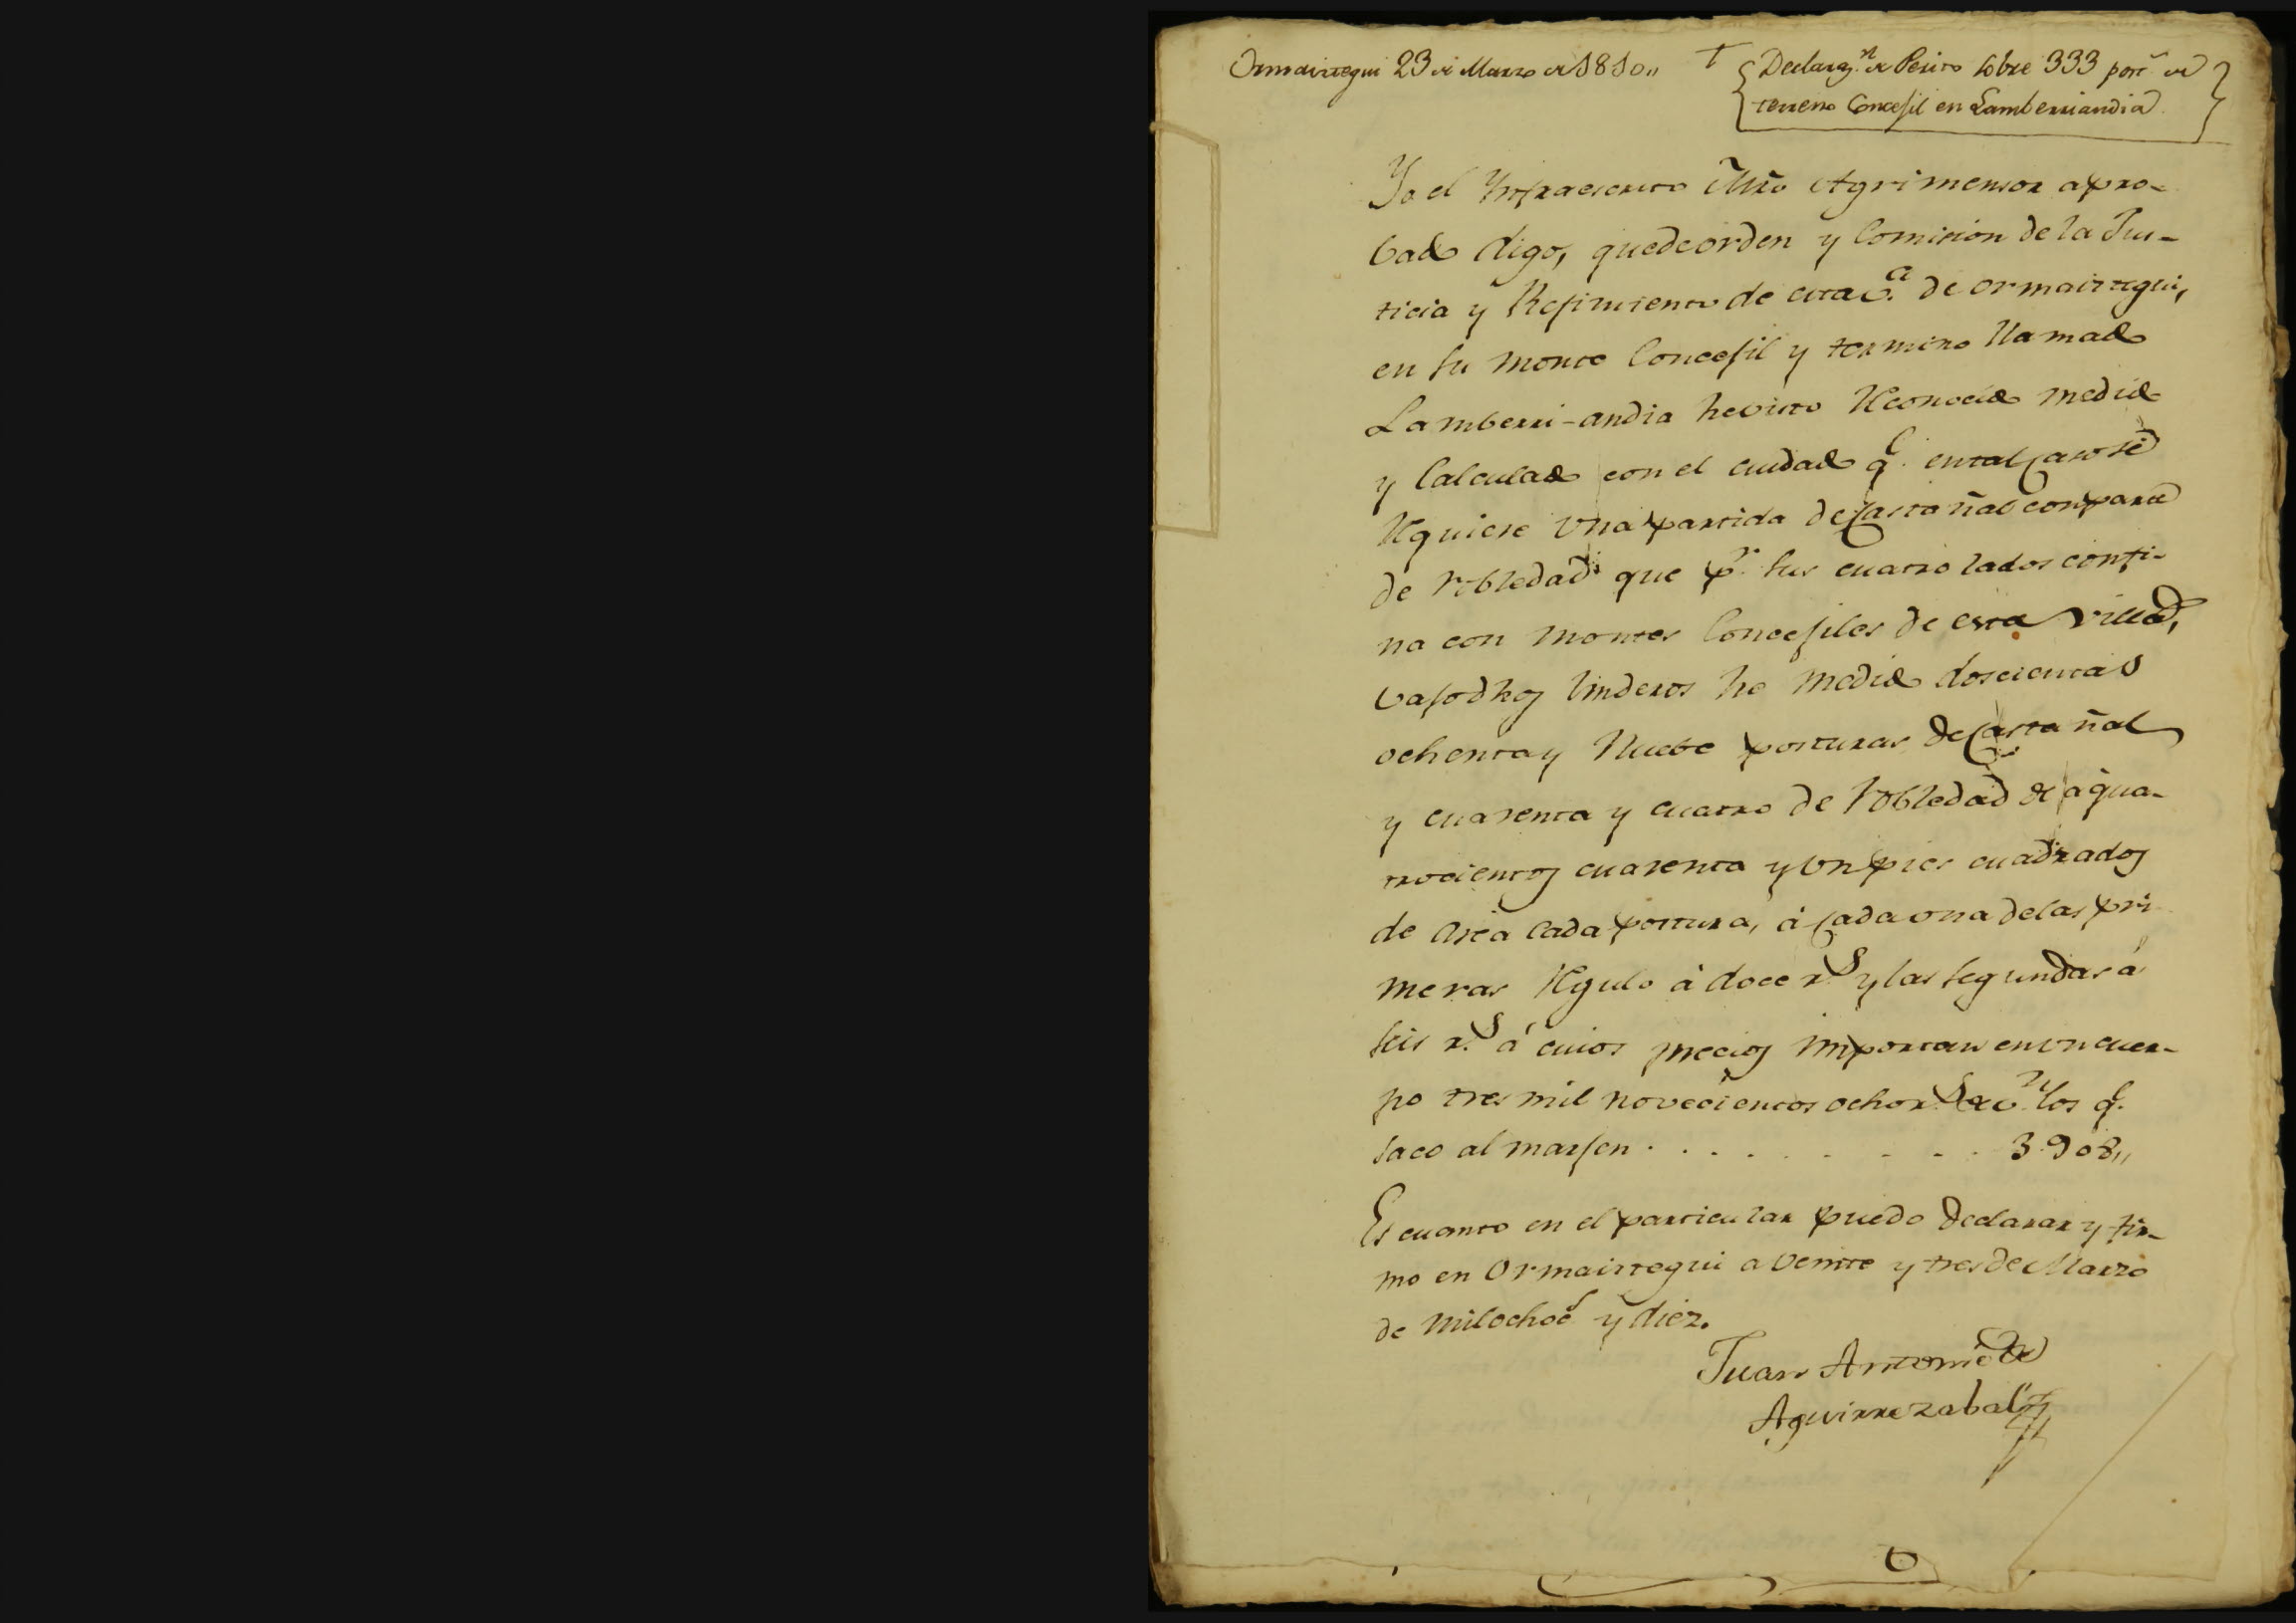 Ormaiztegui 23 de Marzo de 1810,, † Declarazn. de Perito sobre 333 posts. de
terreno Concejil en Lamberriandia
Yo el Ynfraescrito Mro Agrimensor apro-
bado digo, que de orden y Comision de la Jus-
ticia y Rejimiento de esta va. de ormaiztegui,
en su monte Concejil y termino llamado
Lamberri-andia he visto Reconocido medido
y Calculado con el cuidado qe. en tal Caso se
Requiere Una partida de Castañal con parte
de robledad que pr. sus cuatro lados confi-
na con montes Concejiles de esta villa,
bajo dhos linderos he medido doscientas
ochenta y Nuebe posturas de Castañal
y cuarenta y cuatro de robledad de à qua-
trocientos cuarenta y un pies cuadrados
de Area Cada postura, à Cada una de las pri
meras Regulo à doce rs. y las segundas á
seis rs. á cuios precios importan en un cuer-
po tres mil novecientos ocho rs. de vn. los qe.
saco al marjen . . . . . . . . . 3.908,,
Es cuanto en el particular puedo declarar y fir-
mo en Ormaiztegui a veinte y tres de Marzo
de mil ochocs. y diez.
Juan Antonio de
Aguirrezabal